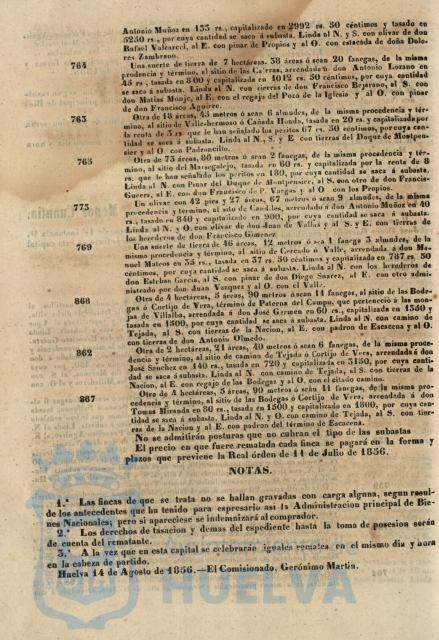 Antonio Muñoz en 133 rs., capitalizado en 2992 rs. 50 céntimos y tasado en
5250 rs., por cuya cantidad se saca á subasta. Linda al N. y S. con olivar de don
Rafael Valcarcel, al E. con pinar de Propios y al O. con estacada de doña Dolo-
res Zambrano.
764 Una suerte de tierra de 7 hectáreas, 38 áreas ó sean 20 fanegas, de la misma
prudencia y término, al sitio de las Caleras, arrendada á don Antonio Lozano en
45 rs., tasada en 800 y capitalizada en 1012 rs. 50 céntimos, por cuya cantidad
se saca á subasta. Linda al N. con tierras de don Francisco Bejarano, al S. con
don Matias Monje, al E. con el regajo del Pozo de la Iglesia y al O. con pinar
de don Francisco Aguirre.
763 Otra de 18 áreas, 45 metros ó sean 6 almudes, de la misma procedencia y tér-
mino, al sitio de Valle-hermoso ó Cañada Honda, tasada en 20 rs. y capitalizada por
la renta de 3 rs que le han señalado los peritos 67 rs. 50 céntimos, por cuya can-
tidad se saca á subasta. Linda al N., S. y E con tierras del Duque de Montpen-
sier y al O con Padroncillo.
765 Otra de 73 áreas, 80 metros ó sean 2 fanegas, de la misma procedencia y tér-
mino, al sitio del Marugalejo, tasada en 60 rs. y capitalizada por la renta de 8
rs. que le han señalado los peritos en 180, por cuya cantidad se saca á subasta.
Linda al N. con Pinar del Duque de Montpensier, al S. con otro de don Francis-
Guerra, al E. con don Francisco de P. Vargas y al O con los Propios.
773 Un olivar con 42 pies y 27 áreas, 67 metros ó sean 9 almudes, de la misma
procedencia y término, al sitio de Candiles, arrendada á don Antonio Muñoz en 40
rs., tasado en 840 y capitalizado en 900, por cuya cantidad se saca á subasta.
Linda al N. y O. con olivar de don Juan de Vallas y al S. y E. con tierras de
los herederos de don Francisco Gimenez.
769 Una suerte de tierra de 46 áreas, 12 metros ó sea 1 fanega 3 almudes, de la
misma procedencia y término, al sitio de Cercado ó Valle, arrendada á don Ma-
nuel Mateos en 35 rs., tasada en 37 rs. 50 céntimos y capitalizada en 787 rs. 50
céntimos, por cuya cantidad se saca á subasta. Linda al N. con los herederos de
don Esteban Garcia, al S. con pinar de don Diego Suarez, al E. con otro admi-
nistrado por don Juan Vazquez y al O. con el Valle.
868 Otra de 4 hectáreas, 5 áreas, 90 metros ó sean 11 fanegas, al sitio de las Bode-
gas ó Cortijo de Vera, término de Paterna del Campo, que perteneció á las mon-
jas de Villalba, arrendada á don José Germen en 60 rs., capitalizada en 1350 y
tasada en 1500, por cuya cantidad se saca á subasta. Linda al N. con camino de
Tejada, al S. con tierras de la Nacion, al E. con padron de Escacena y al O.
con tierras de don Antonio Olmedo.
862 Otra de 2 hectáreas, 21 áreas, 40 metros ó sean 6 fanegas, de la misma proce-
dencia y término, al sitio de camino de Tejada ó Cortijo de Vera, arrendada á don
José Sanchez en 140 rs., tasada en 720 y capitalizada en 3150, por cuya canti-
dad se saca á subasta. Linda al N. con camino de Tejada, al S. con tierras de la
Nacion, al E. con regajo de las Bodegas y al O. con el citado camino.
867 Otra de 4 hectáreas, 5 áreas, 90 metros ó sean 11 fanegas, de la misma pro-
cedencia y término, al sitio de las Bodegas ó Cortijo de Vera, arrendada á don
Tomas Miranda en 80 rs., tasada en 1500 y capitalizada en 1800, por cuya can-
tidad se saca á subasta. Linda al N. y O. con camino de Tejada, al S. con tier-
ras de la Nacion y al E. con padron del término de Escacena.
No se admitirán posturas que no cubran el tipo de las subastas
El precio en que fuere rematada cada finca se pagará en la forma y
plazos que previene la Real órden de 11 de Julio de 1856.
NOTAS.
1.ª Las fincas de que se trata no se hallan gravadas con carga alguna, segun resul-
de los antecedentes que ha tenido para espresarlo asi la Administracion principal de Bie-
nes Nacionales; pero si apareciese se indemnizará al comprador.
2.ª Los derechos de tasacion y demas del espediente hasta la toma de posesion serán
de cuenta del rematante.
3.ª A la vez que en esta capital se celebrarán iguales remates en el mismo dia y hora
en la cabeza de partido.
Huelva 14 de Agosto de 1856.—El Comisionado, Gerónimo Martin.
HUELVA